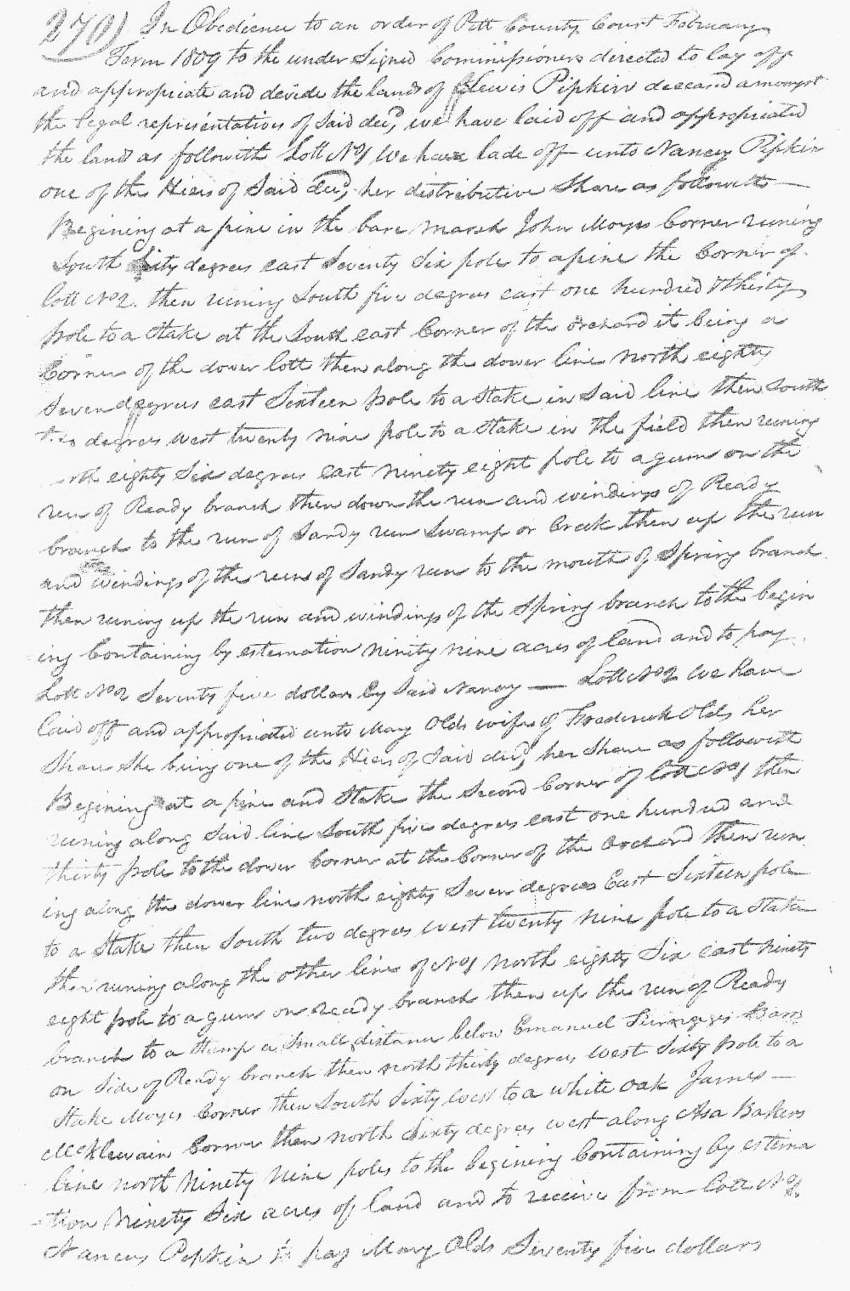 270) In Obedience to an order of Pitt County Court February
Term 1809 to the under Signed Commissioners directed to lay off
and appropriate and devide the lands of Lewis Pipkin deceased amongst
the legal representatives of Said decd, we have laid off and appropriated
the land as followith Lott No 1 We have lade off unto Nancy Pipkin
one of the Heirs of Said decd, her distributive Share as followith —
Begining at a pine in the bare marsh John Moyes Corner runing
South Sixty degrees east Seventy Six pole to a pine the Corner of
lott No 2. then runing South five degrees east one hundred & thirty
pole to a Stake at the South east Corner of the orchard it being a
Corner of the dower lott then along the dower line north eighty
Seven degrees east Sixteen pole to a Stake in Said line then South
two degrees west twenty nine pole to a Stake in the field then runing
north eighty Six degrees east ninety eight pole to a gum on the
run of Ready branch then down the run and windings of Ready
branch to the run of Sandy run Swamp or Creek then up the run
and windings of the run of Sandy run to the mouth of Spring branch
then runing up the run and windings of the Spring branch to the begin
ing Containing by estemation ninity nine acres of land and to pay
Lott No 2 Seventy five dollars by Said Nancy — Lott No 2 We have
laid off and appropriated unto Mary Olds wife of Frederick Olds her
Share She being one of the Heirs of Said decd, her Share as followeth
Begining at a pine and Stake the Second Corner of lott No 1 then
runing along Said line South five degrees east one hundred and
thirty pole to the dower Corner at the Corner of the Orchard then run
ing along the dower line north eighty Seven degrees East Sixteen pole
to a Stake then South two degrees west twenty nine pole to a Stake
then runing along the other line of No 1 North eighty Six east ninety
eight pole to a gum on Ready branch then up the run of Ready
branch to a Stump a Small distance below Emanuel
on Side of Ready branch then north thirty degrees west Sixty pole to a
Stake Moyes Corner then South Sixty west to a white oak James —
McKlewain Corner then north Sixty degrees west along Asa Bakers
line north Ninety nine poles to the begining Containing by estema
tion Ninety Six acres of land and to receive from lott No 1.
Nancy Pipkin to pay Mary Olds Seventy five dollars